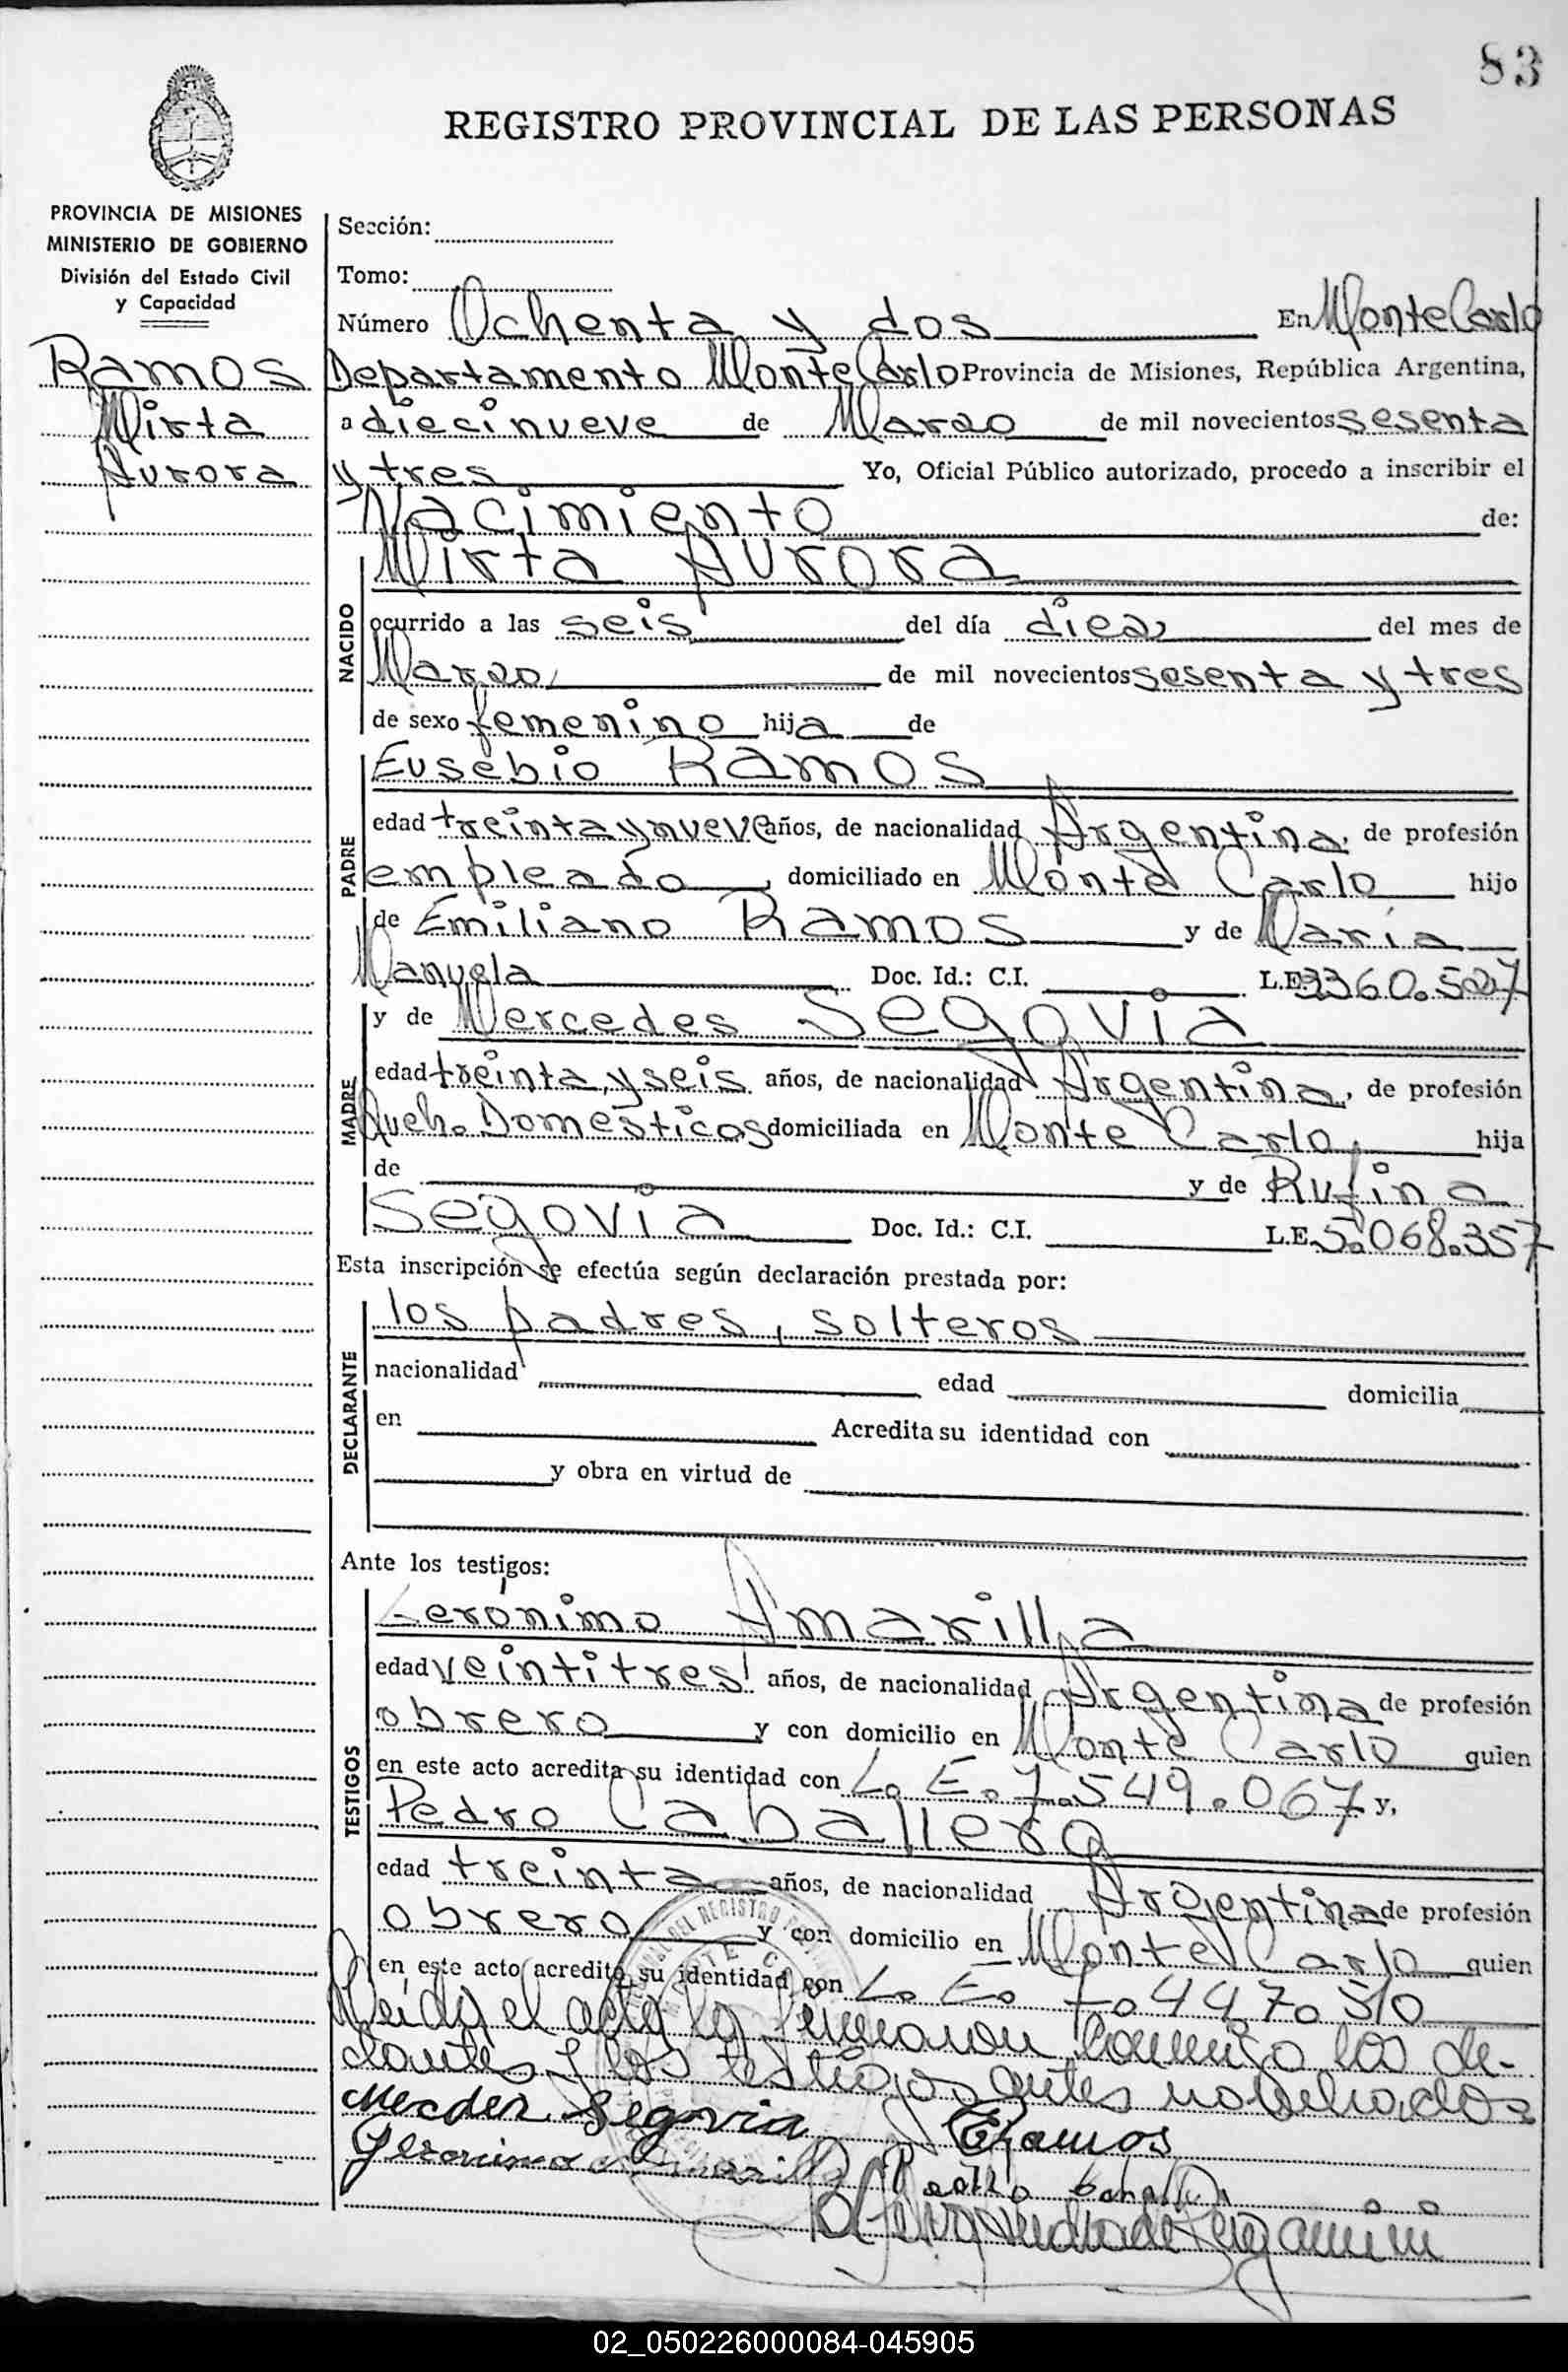 83
REGISTRO PROVINCIAL DE LAS PERSONAS
PROVINCIA DE MISIONES
MINISTERIO DE GOBIERNO
División del Estado Civil
y Capacidad
Ramos
Mirta
Aurora
Sección:
Tomo:
Número Ochenta y dos En Monte Carlo
Departamento Monte Carlo Provincia de Misiones, República Argentina,
a diecinueve de Marzo de mil novecientos sesenta
y tres Yo, Oficial Público autorizado, procedo a inscribir el
Nacimiento de:
NACIDO
Mirta Aurora
ocurrido a las seis del día diez del mes de
Marzo de mil novecientos sesenta y tres
de sexo femenino hija de
PADRE
Eusebio Ramos
edad treinta y nueve años, de nacionalidad Argentina, de profesión
empleado, domiciliado en Monte Carlo hijo
de Emiliano Ramos y de María
Manuela Doc. Id.: C.I. L.E. 3360.527
MADRE
y de Mercedes Segovia
edad treinta y seis años, de nacionalidad Argentina, de profesión
Queh. Domesticos domiciliada en Monte Carlo, hija
de y de Rufina
Segovia Doc. Id.: C.I. L.E. 5.068.357
Esta inscripción se efectúa según declaración prestada por:
DECLARANTE
los padres, solteros
nacionalidad edad domicilia
en Acredita su identidad con
y obra en virtud de
Ante los testigos:
TESTIGOS
Gerónimo Amarilla
edad veintitres años, de nacionalidad Argentina de profesión
obrero y con domicilio en Monte Carlo quien
en este acto acredita su identidad con L. E. 7.549.067 y,
Pedro Caballero
edad treinta años, de nacionalidad Argentina de profesión
obrero y con domicilio en Monte Carlo quien
en este acto acredita su identidad con L. E. 7.447.510
Leida el acta la firmaron conmigo los de-
clantes y los testigos antes nombrados
Mercedes Segovia E Ramos
Geronimo Amarilla Pedro
02_050226000084-045905